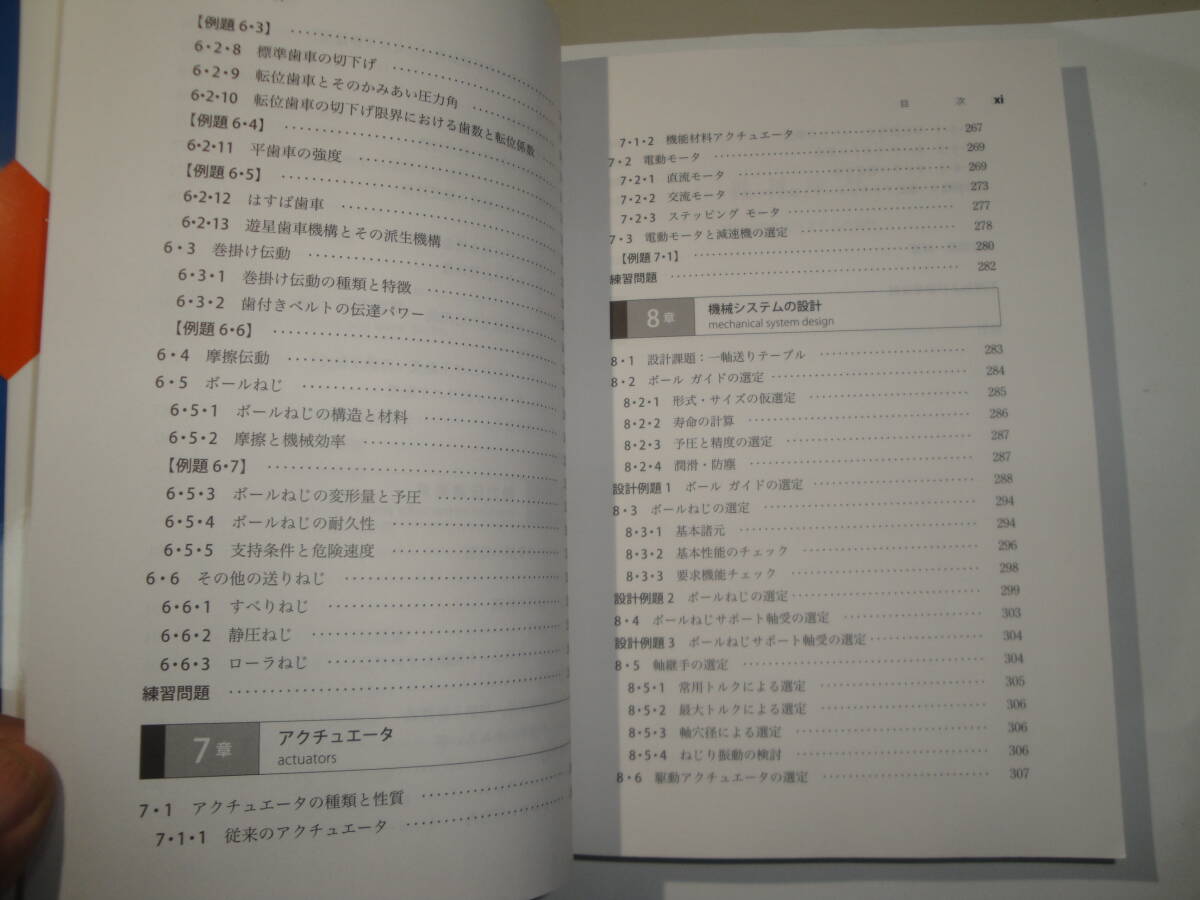 【例題 6・3】
6・2・8 標準歯車の切下げ
6・2・9 転位歯車とそのかみあい圧力角
6・2・10 転位歯車の切下げ限界における歯数と転位係数
【例題 6・4】
6・2・11 平歯車の強度
【例題 6・5】
6・2・12 はすば歯車
6・2・13 遊星歯車機構とその派生機構
6・3 巻掛け伝動
6・3・1 巻掛け伝動の種類と特徴
6・3・2 歯付きベルトの伝達パワー
【例題 6・6】
6・4 摩擦伝動
6・5 ボールねじ
6・5・1 ボールねじの構造と材料
6・5・2 摩擦と機械効率
【例題 6・7】
6・5・3 ボールねじの変形量と予圧
6・5・4 ボールねじの耐久性
6・5・5 支持条件と危険速度
6・6 その他の送りねじ
6・6・1 すべりねじ
6・6・2 静圧ねじ
6・6・3 ローラねじ
練習問題
7章 アクチュエータ
actuators
7・1 アクチュエータの種類と性質
7・1・1 従来のアクチュエータ
目 次 xi
7・1・2 機能材料アクチュエータ 267
7・2 電動モータ 269
7・2・1 直流モータ 269
7・2・2 交流モータ 273
7・2・3 ステッピング モータ 277
7・3 電動モータと減速機の選定 278
【例題 7・1】 280
練習問題 282
8章 機械システムの設計
mechanical system design
8・1 設計課題：一軸送りテーブル 283
8・2 ボール ガイドの選定 284
8・2・1 形式・サイズの仮選定 285
8・2・2 寿命の計算 286
8・2・3 予圧と精度の選定 287
8・2・4 潤滑・防塵 287
設計例題 1 ボール ガイドの選定 288
8・3 ボールねじの選定 294
8・3・1 基本諸元 294
8・3・2 基本性能のチェック 296
8・3・3 要求機能チェック 298
設計例題 2 ボールねじの選定 299
8・4 ボールねじサポート軸受の選定 303
設計例題 3 ボールねじサポート軸受の選定 304
8・5 軸継手の選定 304
8・5・1 常用トルクによる選定 305
8・5・2 最大トルクによる選定 306
8・5・3 軸穴径による選定 306
8・5・4 ねじり振動の検討 306
8・6 駆動アクチュエータの選定 307